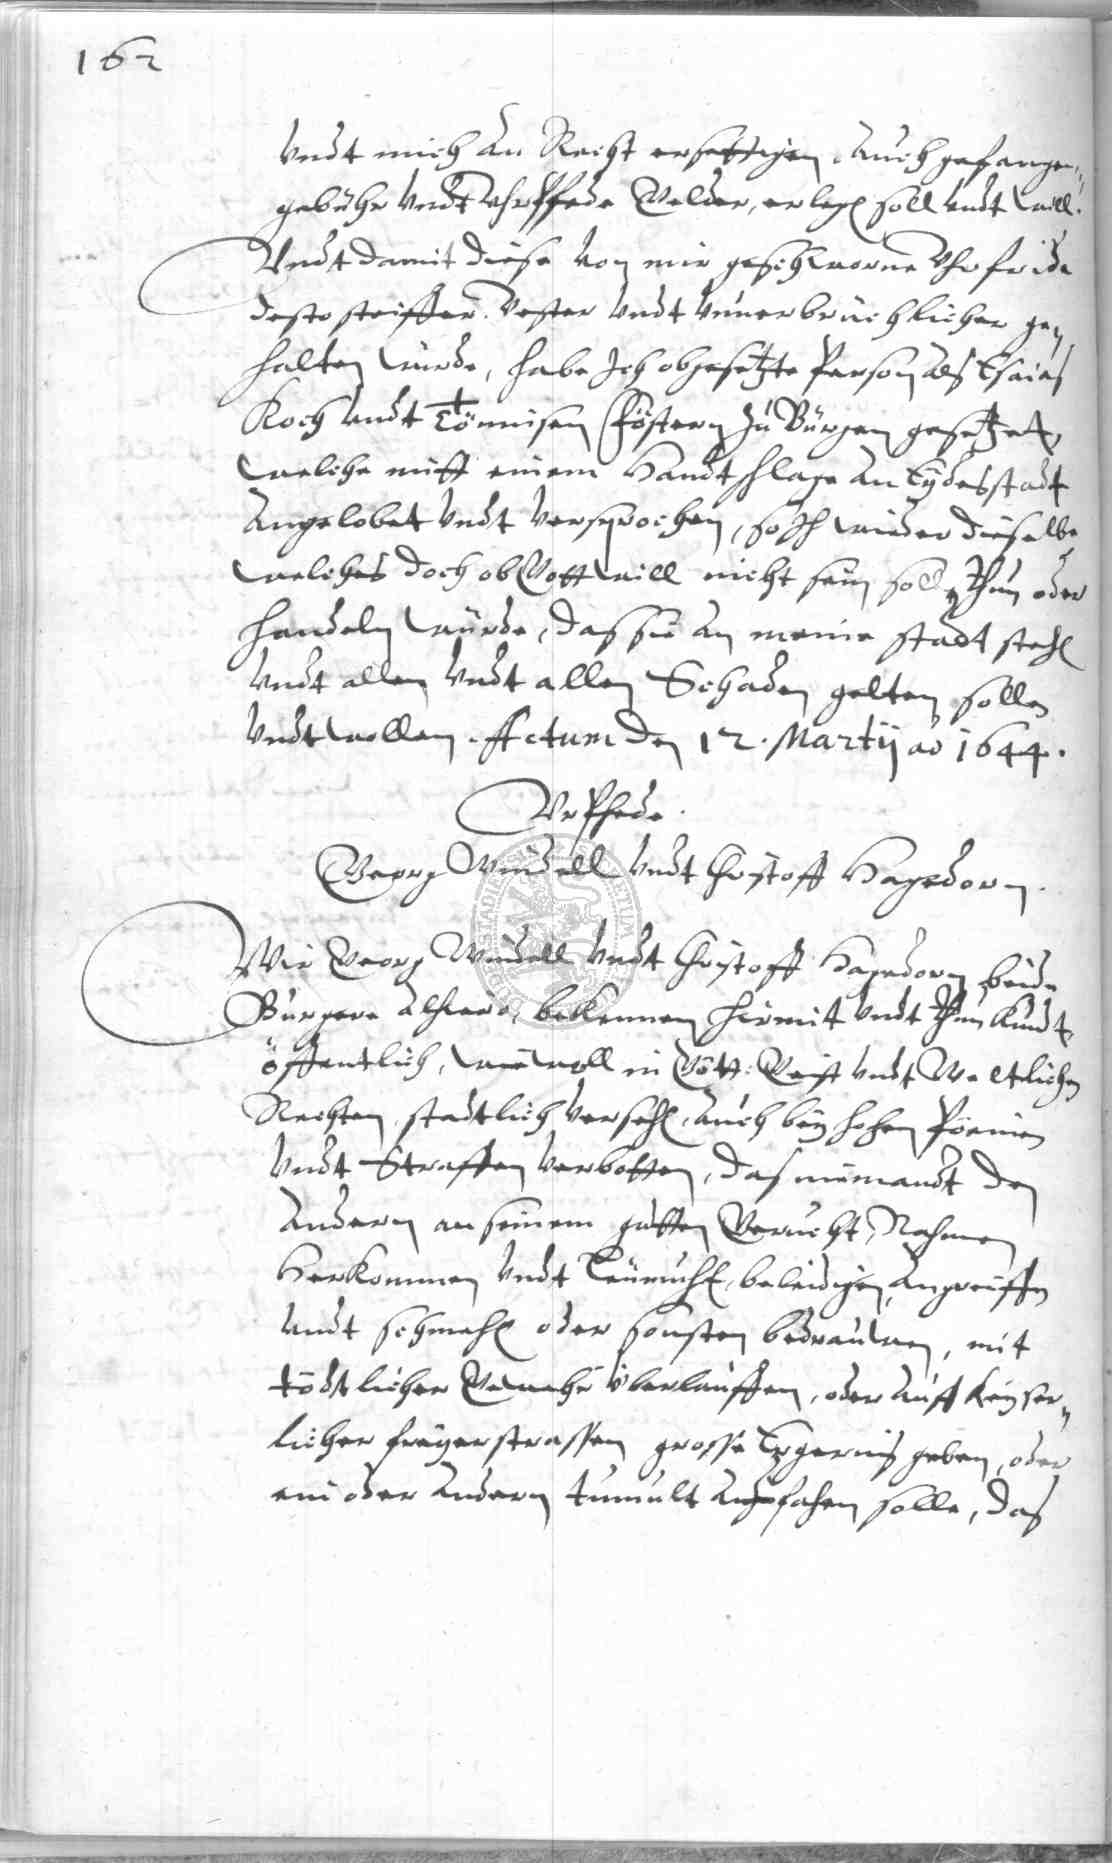 162
Undt mich an Recht ersettigen, auch gefangen=
gebühr undt Uhrpfede Gelder, erlegen soll undt will.
Undt damit diese von mir geschworne Uhrfride
desto steiffer, Vester undt unverbrüchlicher ge=
halten würde, habe Ich obgesetzte Person als Esaias
Koch undt Tönnisen zu Bürgen gesetzet,
welche mitt einem Handtschlage an Eydesstadt
angelobet undt versprochen, so Ich wieder dieselbe
welches doch ob Gott will nicht sein soll, thun oder
handeln würde, das sie an meine stadt stehen
undt allen undt allen Schaden gelten sollen
undt wollen. Actum den 12. Martij ao 1644.
Urphede.
Georg Windell undt Christoff Hagedorn.
Wir Georg Windell undt Christoff Hagedorn beide
Burgere alhiero, bekennen hirmit undt thun kundt
öffentlich, wiewoll in Gött: Geist undt Weltlichen
Rechten stadtlich versehen, auch bey hohen Poenen
undt Straffen verbotten, das niemandt den
andern an seinem gutten Gerucht, Nahmen
Herkommen undt beleidigen, angreiffen
undt schmehen oder sonsten bedrauwen, mit
tödtlicher Gewehr überlauffen, oder auff Keyser=
licher freyerstrassen grosse Ergernis geben, oder
ein oder andern tumult anfahen solle, das